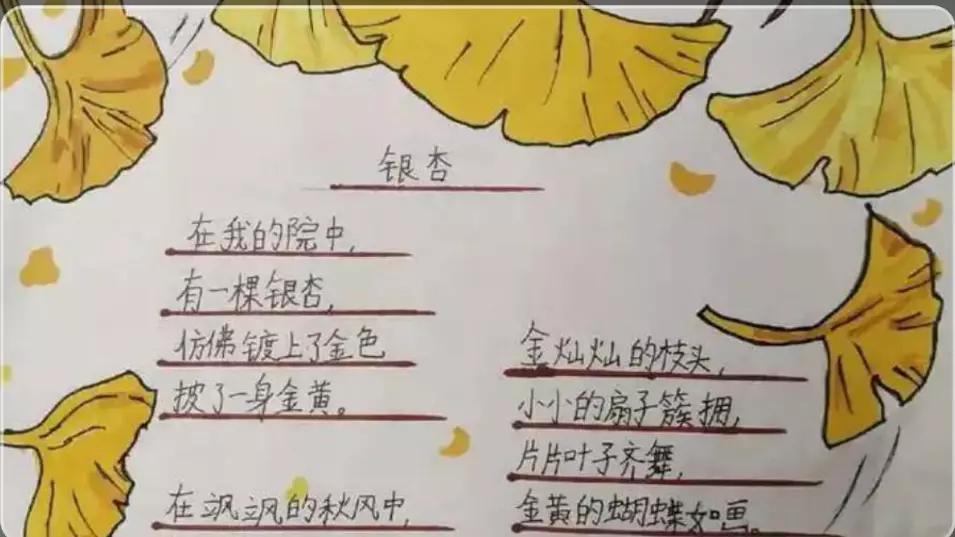 银杏
在我的院中，
有一棵银杏，
仿佛镀上了金色
披了一身金黄。
在飒飒的秋风中，
金灿灿的枝头，
小小的扇子簇拥，
片片叶子齐舞，
金黄的蝴蝶如画。